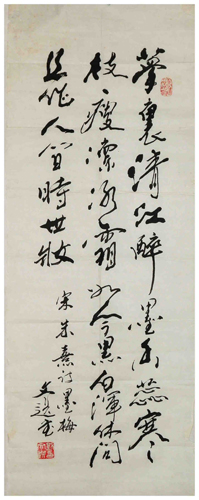 夢裏清江醉墨香蕊寒
枝瘦凛冰霜如今黑白渾休問
且作人間時世妝
宋朱熹詩墨梅
文